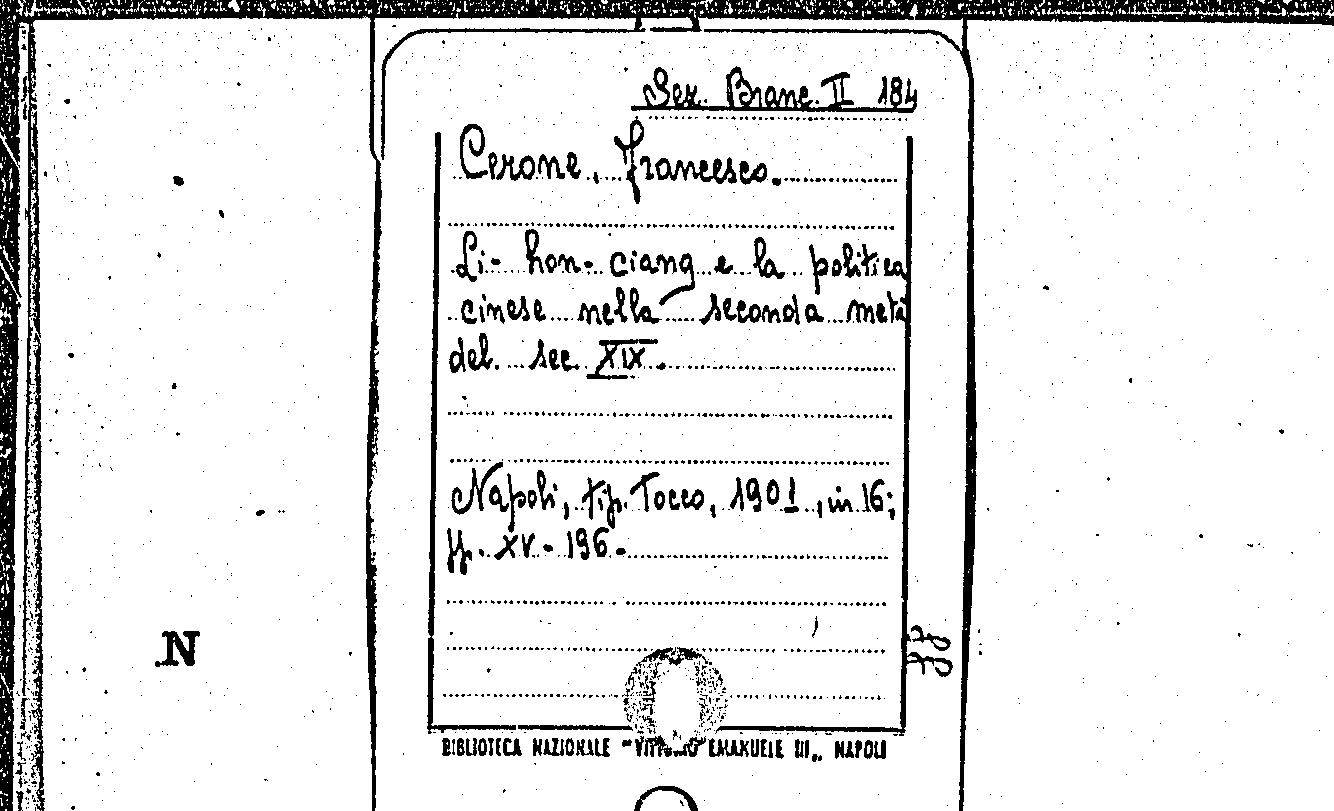 Sez. Branc. II 184
Cerone, Francesco.
Li-hon-ciang e la politica
cinese nella seconda metà
del sec. XIX.
Napoli, tip. Tocco, 1901, in 16;
pp. XV-196.
N
BIBLIOTECA NAZIONALE "VITTORIO EMANUELE III„ NAPOLI